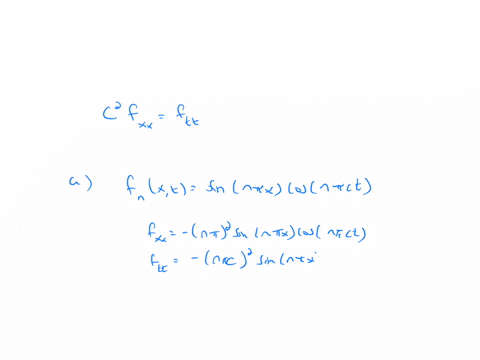 c² f_xx = f_tt
a) f_n (x,t) = sin (nπx) cos (nπct)
f_xx = -(nπ)² sin (nπx) cos (nπct)
f_tt = -(nπc)² sin (nπx